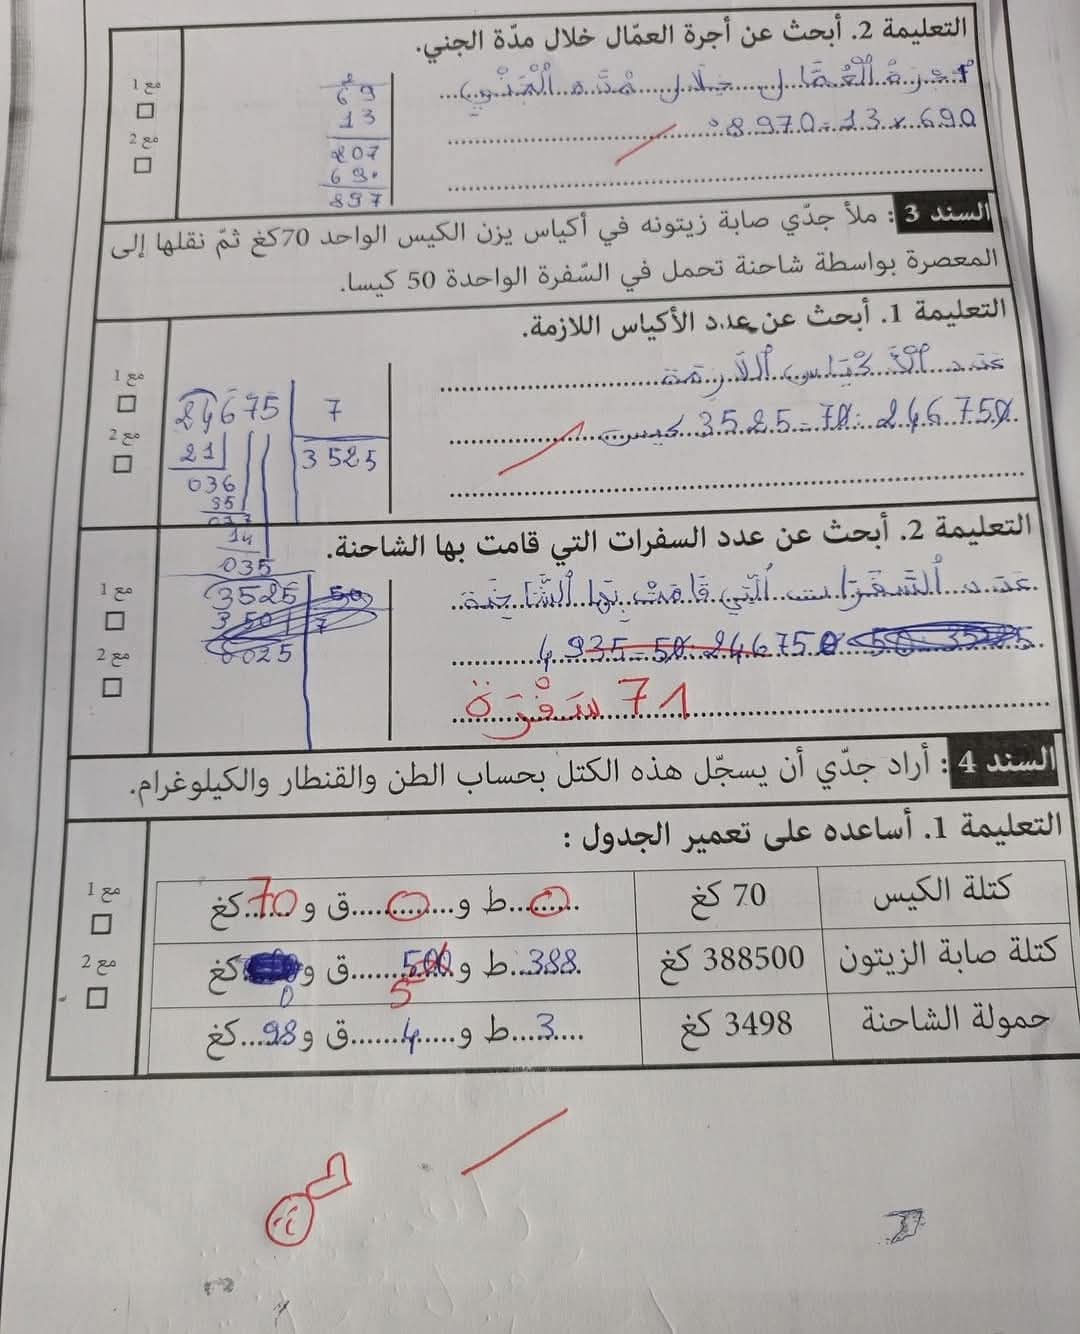 التعليمة 2. أبحث عن أجرة العمّال خلال مدّة الجني.
أجرة العمّال خلال مدّة الجني
690 × 13 = 8970
69
13
207
690
897
مع 1
مع 2
السند 3 : ملأ جدّي صابة زيتونه في أكياس يزن الكيس الواحد 70كغ ثمّ نقلها إلى
المعصرة بواسطة شاحنة تحمل في السّفرة الواحدة 50 كيسا.
التعليمة 1. أبحث عن عدد الأكياس اللازمة.
عدد الأكياس اللازمة
246750 : 70 = 3525 كيس
24675 | 7
21 | 3525
036
35
14
035
مع 1
مع 2
التعليمة 2. أبحث عن عدد السفرات التي قامت بها الشاحنة.
عدد السفرات التي قامت بها الشاحنة
246750 : 50 = 4935
71 سفرة
3525 | 50
350 | 7
0025
مع 1
مع 2
السند 4 : أراد جدّي أن يسجّل هذه الكتل بحساب الطن والقنطار والكيلوغرام.
التعليمة 1. أساعده على تعمير الجدول :
كتلة الكيس 70 كغ ......ط و......ق و 70 كغ
كتلة صابة الزيتون 388500 كغ 388 ط و 5 ق و 0 كغ
حمولة الشاحنة 3498 كغ 3 ط و 4 ق و 98 كغ
مع 1
مع 2